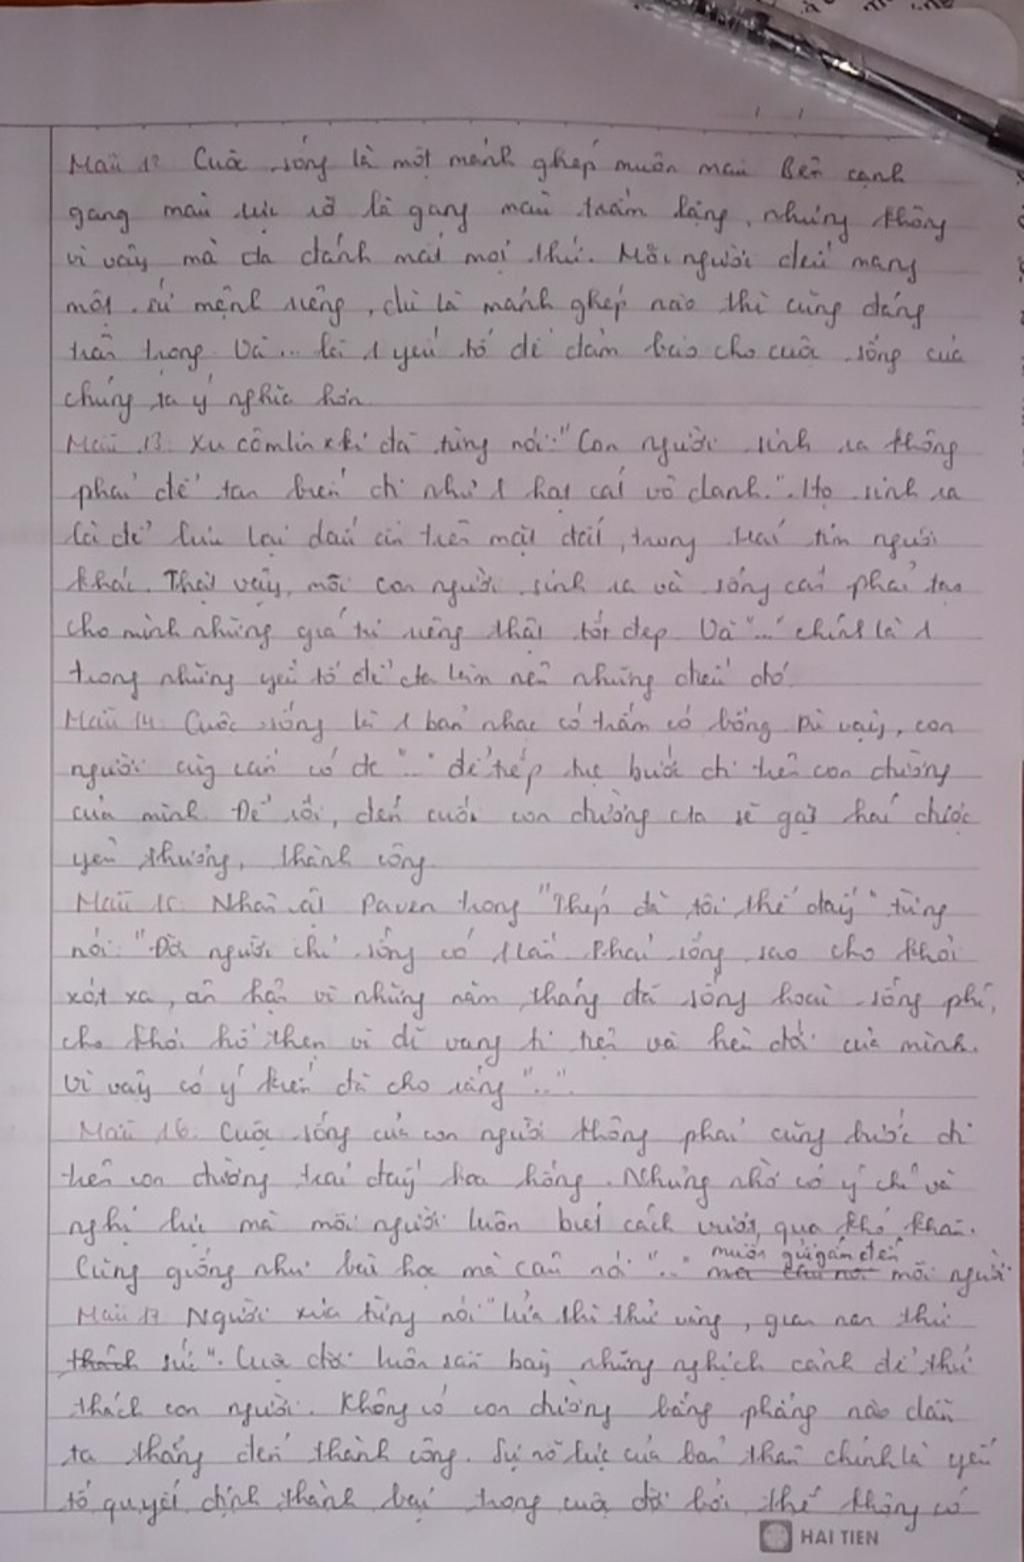 Mẫu 12: Cuộc sống là một mảnh ghép muôn màu. Bên cạnh
gang màu rực rỡ là gang màu trầm lặng, nhưng không
vì vậy mà ta đánh mất mọi thứ. Mỗi người đều mang
một sứ mệnh riêng, dù là mảnh ghép nào thì cũng đáng
trân trọng. Và ... là 1 yếu tố để đảm bảo cho cuộc sống của
chúng ta ý nghĩa hơn.
Mẫu 13: Xu cômlinxki đã từng nói: "Con người sinh ra không
phải để tan biến đi như 1 hạt cát vô danh." Họ sinh ra
là để lưu lại dấu ấn trên mặt đất, trong trái tim người
khác. Thật vậy, mỗi con người sinh ra và sống cần phải tạo
cho mình những giá trị riêng thật tốt đẹp. Và "..." chính là 1
trong những yếu tố để ta làm nên những điều đó.
Mẫu 14: Cuộc sống là 1 bản nhạc có trầm có bổng. Vì vậy, con
người cũng cần có đc "..." để tiếp tục bước đi trên con đường
của mình. Để rồi, đến cuối con đường ta sẽ gặt hái được
yêu thương, thành công.
Mẫu 15: Nhân vật Paven trong "Thép đã tôi thế đấy" từng
nói: "Đời người chỉ sống có 1 lần. Phải sống sao cho khỏi
xót xa, ân hận vì những năm, tháng đã sống hoài, sống phí,
cho khỏi hổ thẹn vì dĩ vãng ti tiện và hèn đớn của mình.
Vì vậy có ý kiến đã cho rằng "...".
Mẫu 16: Cuộc sống của con người không phải cũng bước đi
trên con đường trải đầy hoa hồng. Nhưng nhờ có ý chí và
nghị lực mà mỗi người luôn biết cách vượt qua khó khăn.
Cũng giống như bài học mà câu nói "..." muốn gửi gắm đến mỗi người
Mẫu 17: Người xưa từng nói "lửa thử vàng, gian nan thử
sức". Cuộc đời luôn sẵn bày những nghịch cảnh để thử
thách con người. Không có con đường bằng phẳng nào dẫn
ta thẳng đến thành công. Sự nỗ lực của bản thân chính là yếu
tố quyết định thành bại trong cuộc đời bởi thế không có
HAI TIEN